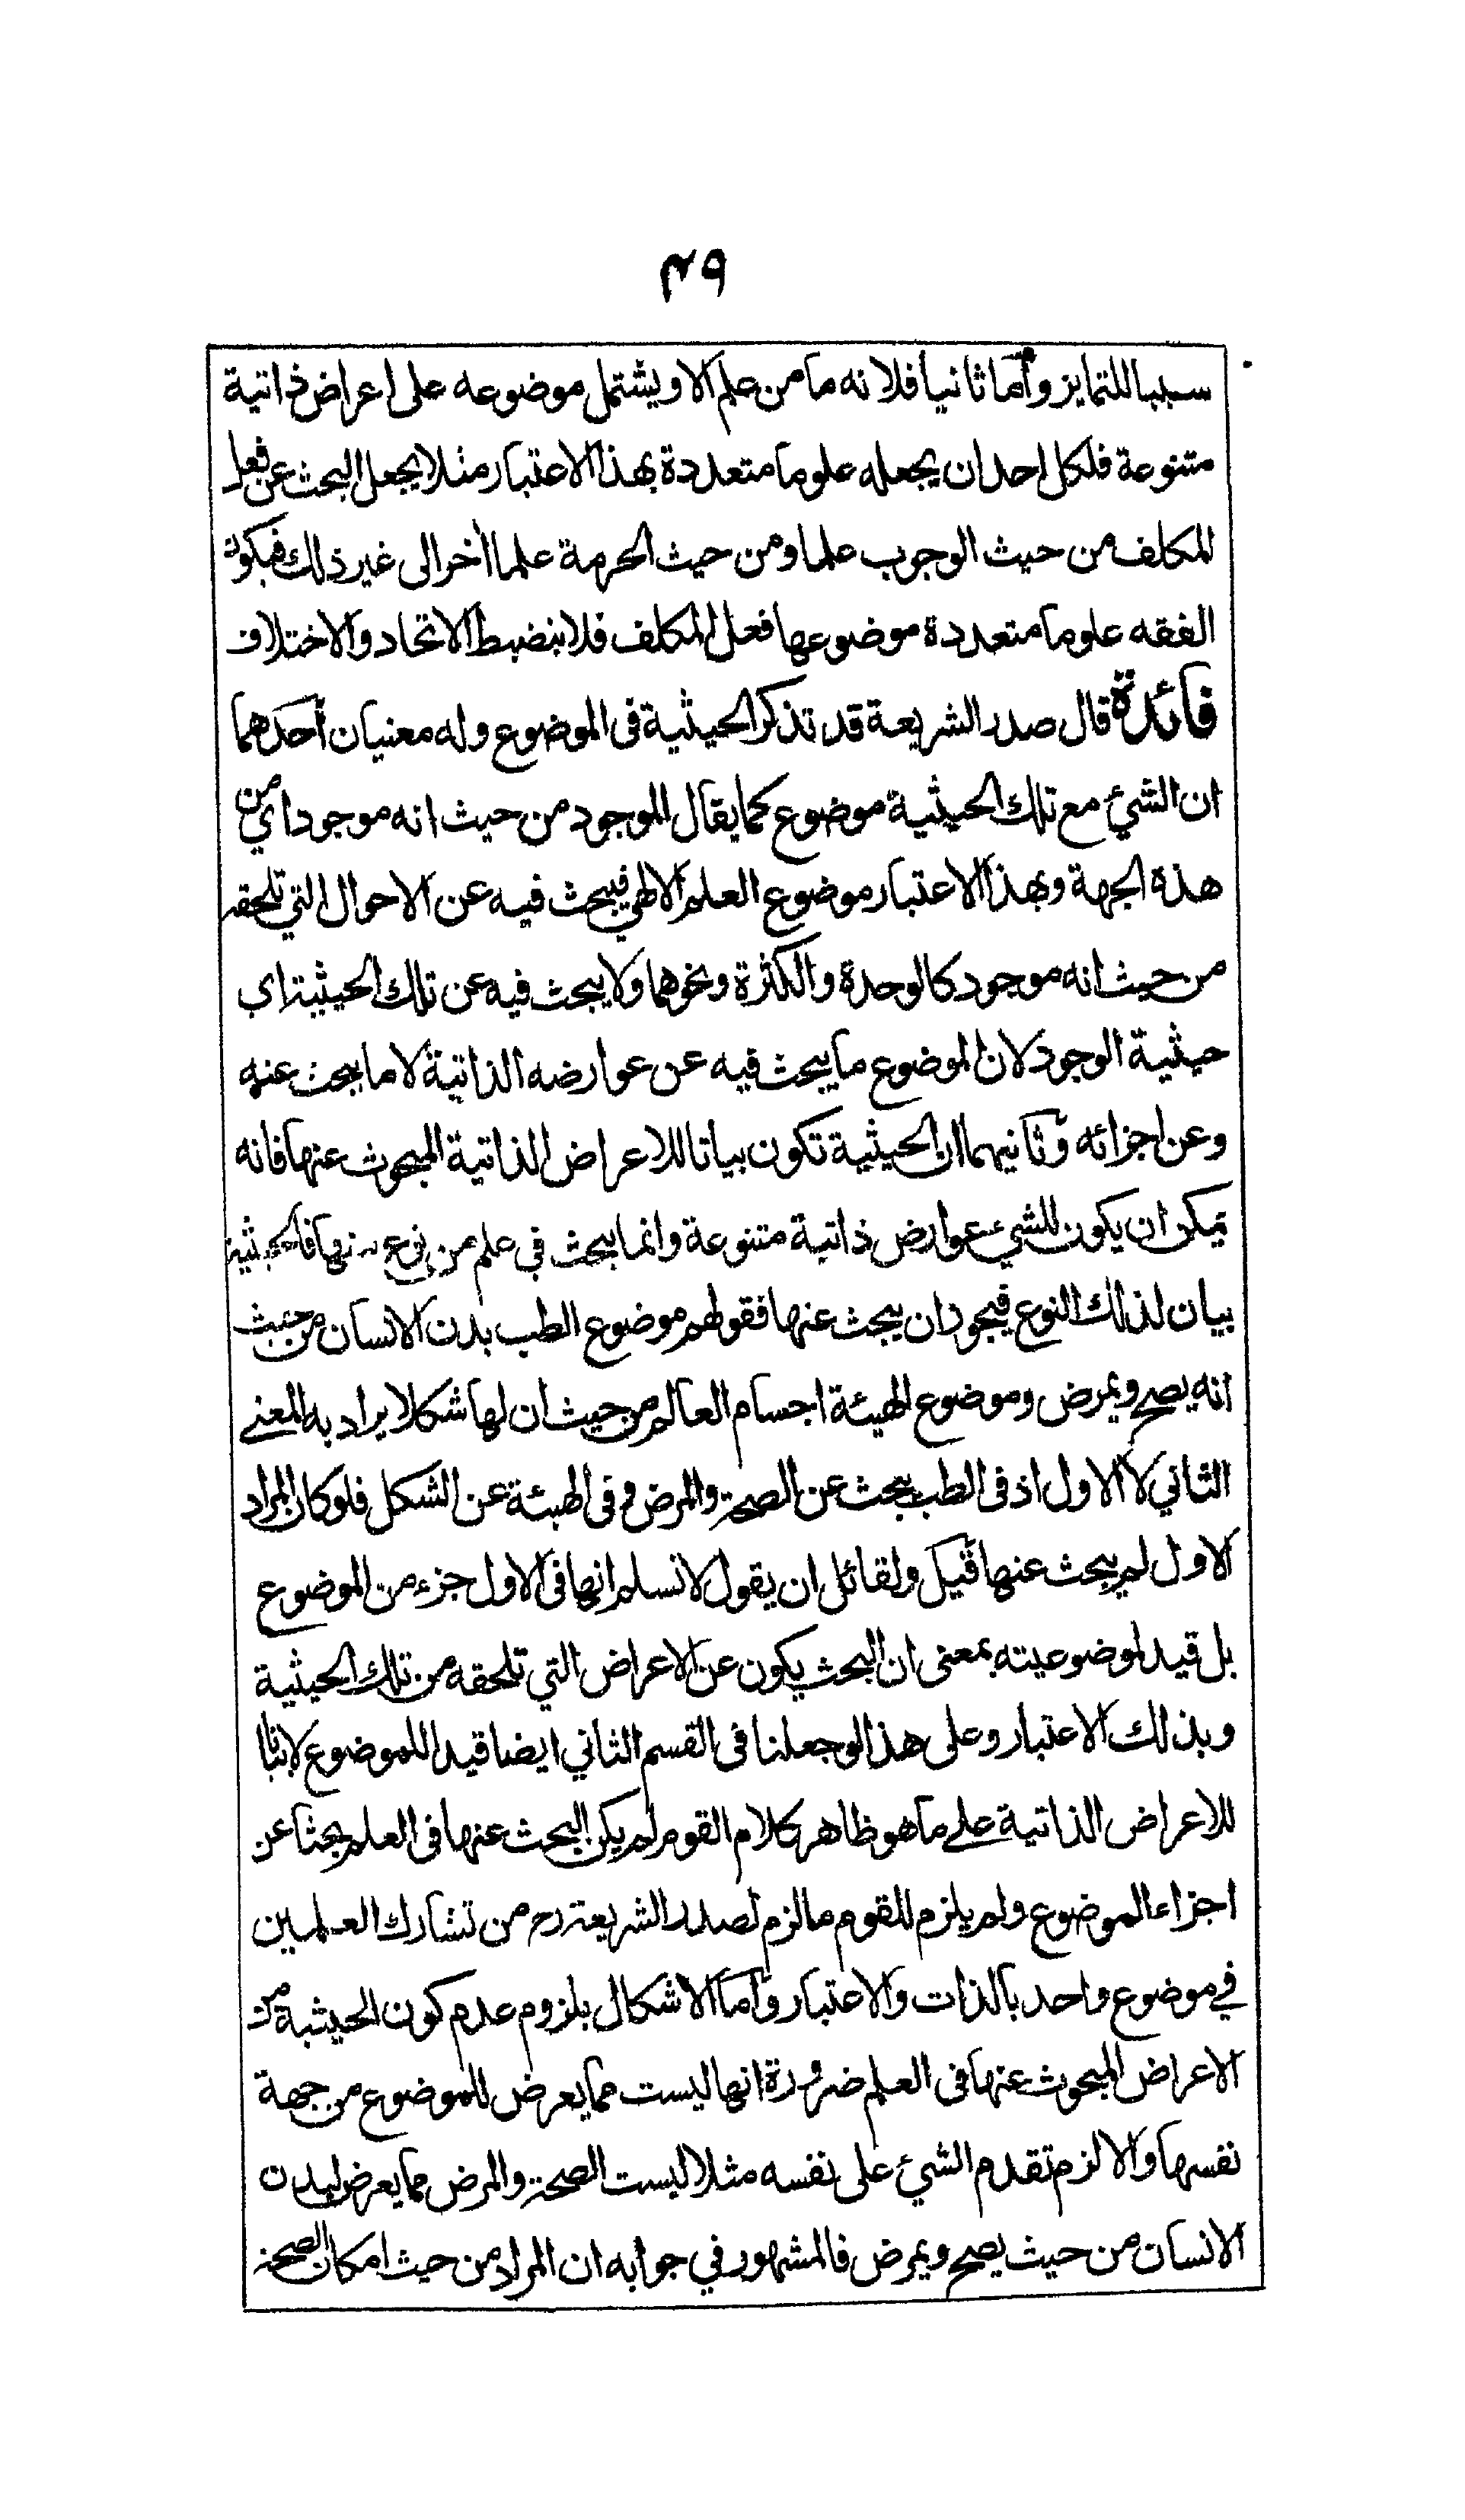 ٤٩
سببا للتمايز وأما ثانيا فلانه ما من علم الا ويشتمل موضوعه على اعراض ذاتية
متنوعة فلكل احد ان يجعله علوما متعددة بهذا الاعتبار مثلا يجعل البحث عن فعل
المكلف من حيث الوجوب علما ومن حيث الحرمة علما أخر الى غير ذلك فيكون
الفقه علوما متعددة موضوعها فعل المكلف فلا ينضبط الاتحاد والاختلاف
فائدة قال صدر الشريعة قد تذكر الحيثية في الموضوع وله معنيان أحدهما
ان الشئ مع تلك الحيثية موضوع كما يقال الموجود من حيث انه موجود اي من
هذه الجهة وبهذا الاعتبار موضوع العلم الالهي فيبحث فيه عن الاحوال التي تلحقه
من حيث انه موجود كالوحدة والكثرة ونحوهما ولا يبحث فيه عن تلك الحيثية اى
حيثية الوجود لان الموضوع ما يبحث فيه عن عوارضه الذاتية لا ما يبحث عنه
وعن اجزائه وثانيهما ان الحيثية تكون بيانا للاعراض الذاتية المبحوث عنها فانه
يمكن ان يكون للشئ عوارض ذاتية متنوعة وانما يبحث في علم من نوع منها فالحيثية
بيان لذلك النوع فيجوز ان يبحث عنها فقولهم موضوع الطب بدن الانسان من حيث
انه يصح ويمرض وموضوع الهيئة اجسام العالم من حيث ان لها شكلا يراد به المعنى
الثاني لا الاول اذ في الطب يبحث عن الصحة والمرض وفى الهيئة عن الشكل فلو كان المراد
الاول لم يبحث عنها قيل ولقائل ان يقول لا نسلم انها فى الاول جزء من الموضوع
بل قيد لموضوعيته بمعنى ان البحث يكون عن الاعراض التي تلحقه من تلك الحيثية
وبذلك الاعتبار وعلى هذا لو جعلنا فى القسم الثاني ايضا قيدا للموضوع لا بيانا
للاعراض الذاتية على ما هو ظاهر كلام القوم لم يكن البحث عنها فى العلم بحثا عن
اجزاء الموضوع ولم يلزم للقوم ما لزم لصدر الشريعة رح من تشارك العلمين
في موضوع واحد بالذات والاعتبار وأما الاشكال بلزوم عدم كون الحيثية من
الاعراض المبحوث عنها فى العلم ضرورة انها ليست مما يعرض للموضوع من جهة
نفسها والا لزم تقدم الشئ على نفسه مثلا ليست الصحة والمرض مما يعرض لبدن
الانسان من حيث يصح ويمرض فالمشهور في جوابه ان المراد من حيث امكان الصحة